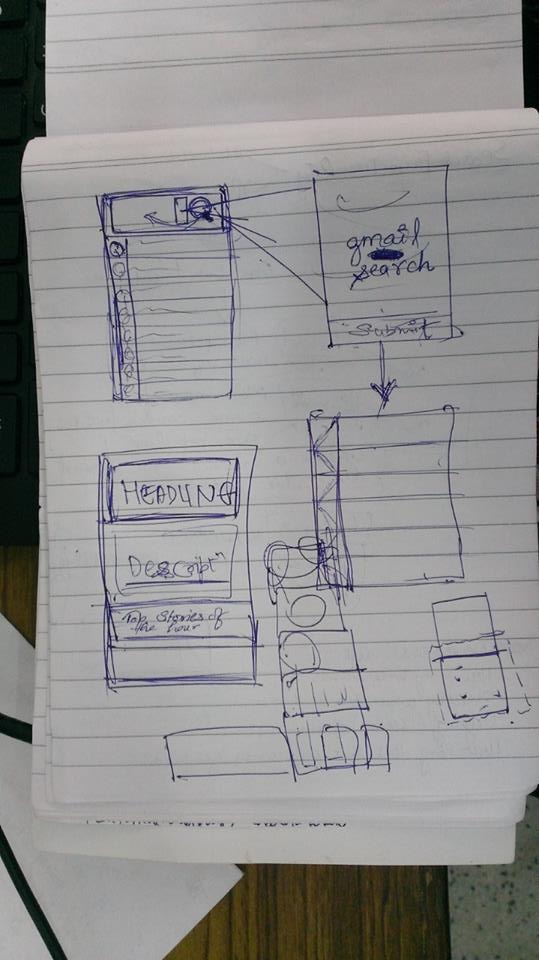 gmail
search
Submit
HEADLINE
Descriptn
Top Stories of
the hour